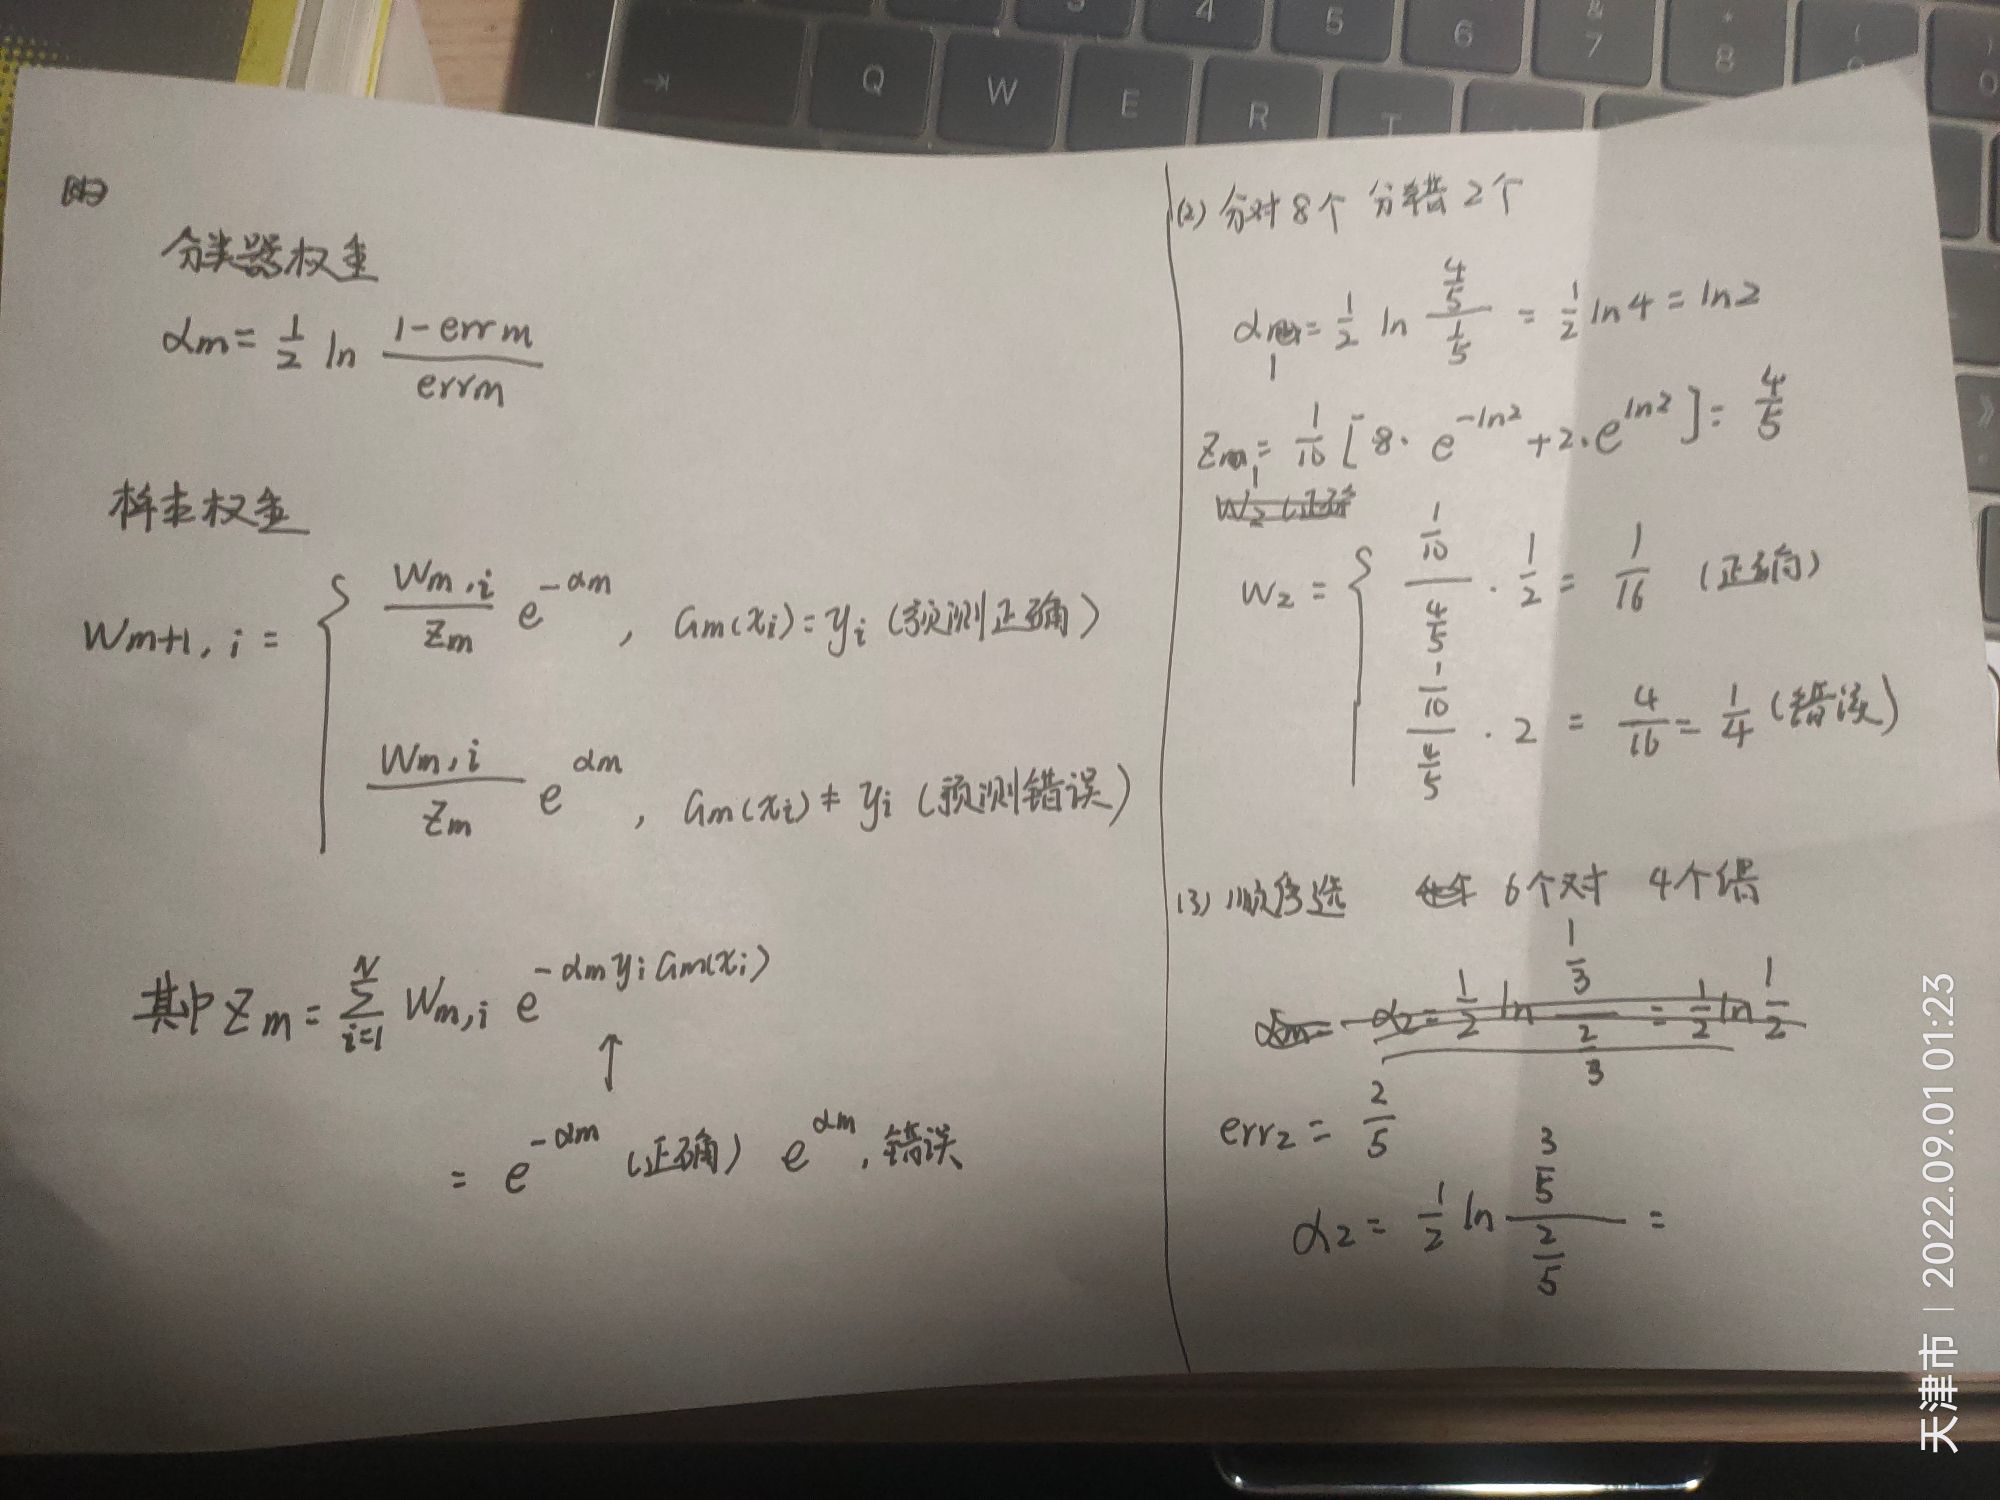 分类器权重
αm = 1/2 ln (1-errm)/(errm)
样本权重
Wm+1,i = { Wm,i/Zm e^(-αm), Gm(xi) = yi (预测正确)
Wm,i/Zm e^(αm), Gm(xi) ≠ yi (预测错误)
其中 Zm = Σ_{i=1}^{N} Wm,i e^(-αm yi Gm(xi))
↑
= e^(-αm) (正确) e^(αm), 错误
(2) 分对8个 分错2个
α1 = 1/2 ln (4/5)/(1/5) = 1/2 ln4 = ln2
Z1 = 1/10 [8·e^(-ln2) + 2·e^(ln2)] = 4/5
W2 (正确
W2 = { (1/10)/(4/5) · 1/2 = 1/16 (正确)
(1/10)/(4/5) · 2 = 4/16 = 1/4 (错误)
(3) 顺序选 6个对 4个错
αm = α2 = 1/2 ln (1/3)/(2/3) = 1/2 ln 1/2
err2 = 2/5
α2 = 1/2 ln (3/5)/(2/5) =
→|
Q W E R T
3 4 5 6 & 7 * 8 ( 9 ) 0
天津市 | 2022.09.01 01:23